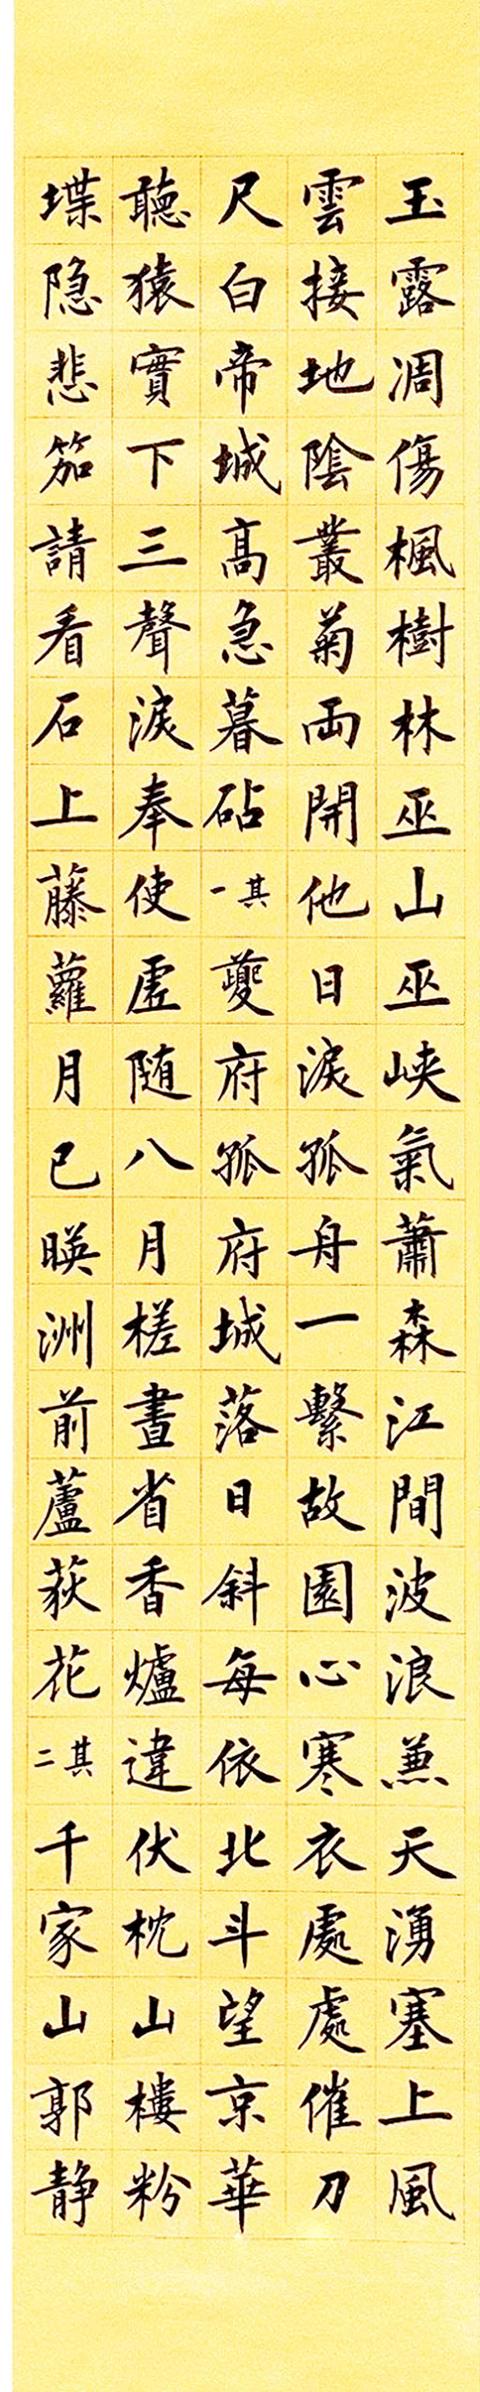 玉露凋傷楓樹林巫山巫峡氣蕭森江間波浪兼天湧塞上風
雲接地陰叢菊兩開他日淚孤舟一繫故園心寒衣處處催刀
尺白帝城高急暮砧其一夔府孤府城落日斜每依北斗望京華
聽猿實下三聲淚奉使虛随八月槎畫省香爐違伏枕山樓粉
堞隐悲笳請看石上藤蘿月已暎洲前蘆荻花其二千家山郭静